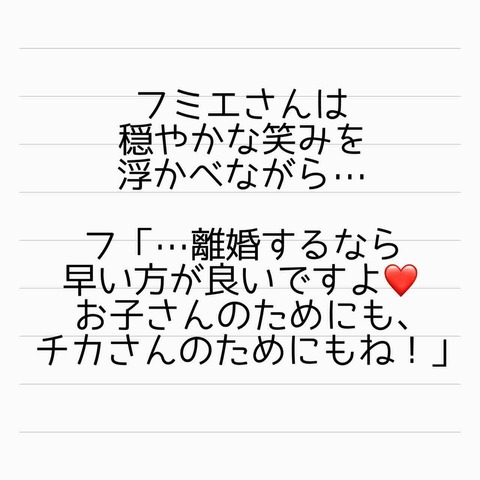 フミエさんは
穏やかな笑みを
浮かべながら…
フ「…離婚するなら
早い方が良いですよ❤️
お子さんのためにも、
チカさんのためにもね！」